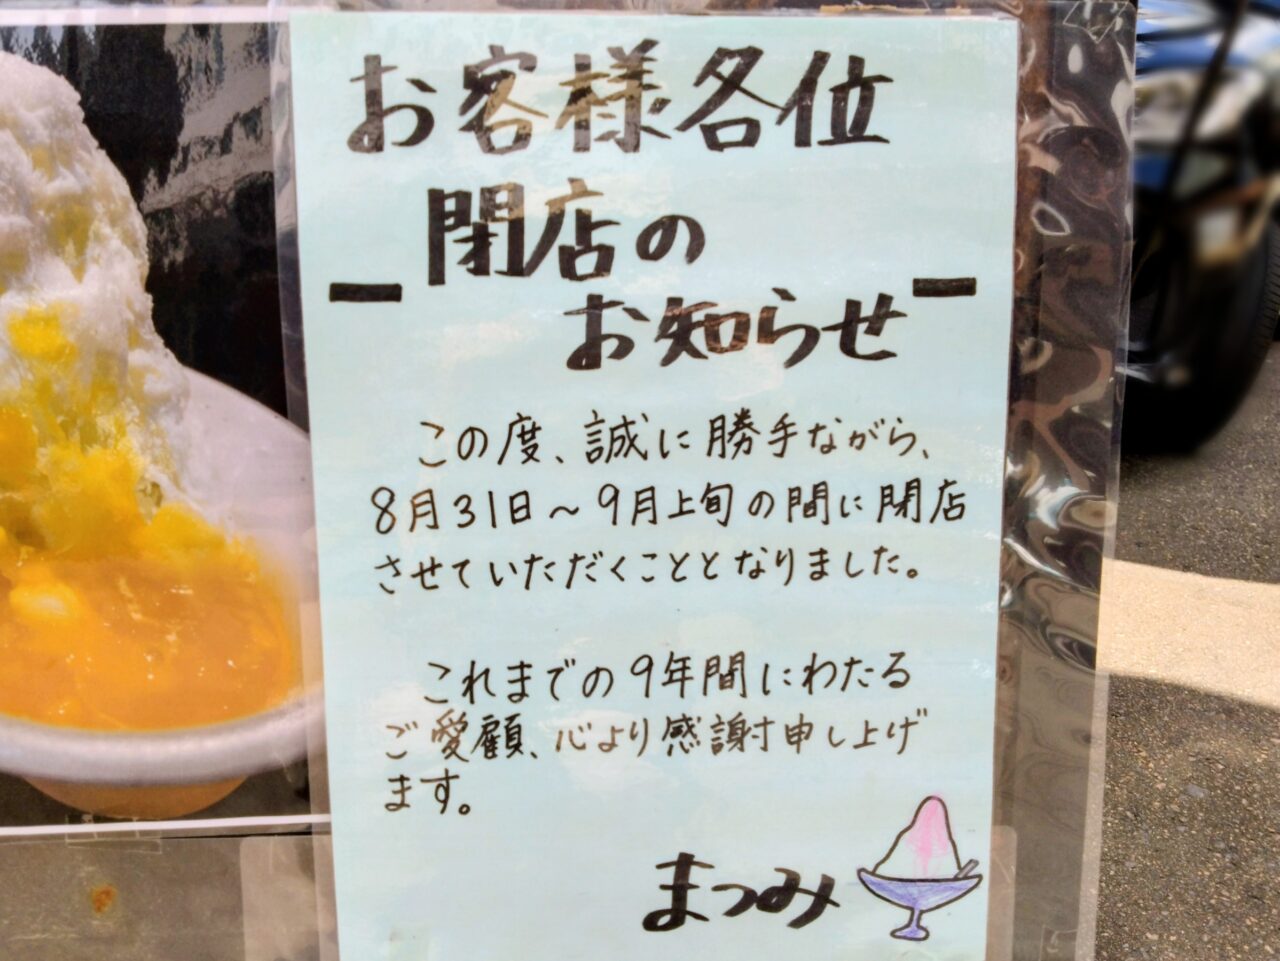 お客様各位
閉店の
お知らせ
この度、誠に勝手ながら、
8月31日～9月上旬の間に閉店
させていただくこととなりました。
これまでの9年間にわたる
ご愛顧、心より感謝申し上げ
ます。
まつみ